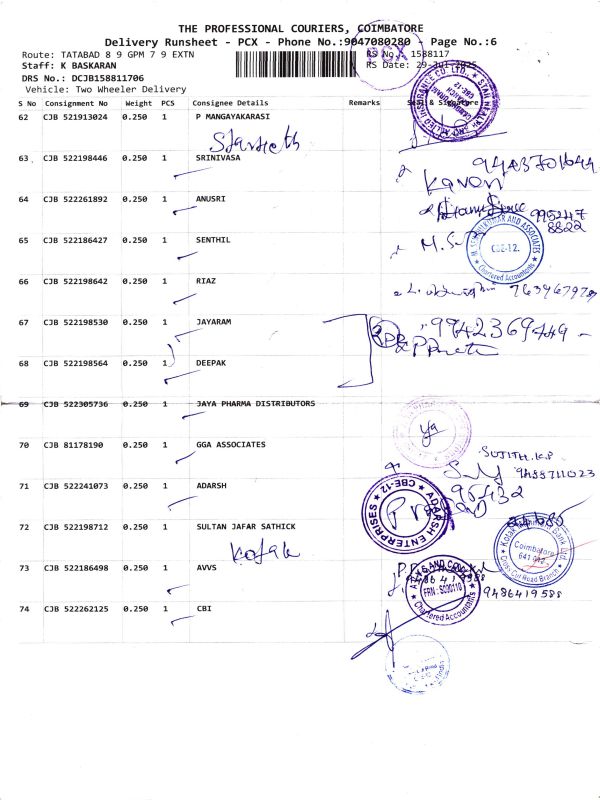 THE PROFESSIONAL COURIERS, COIMBATORE
Delivery Runsheet - PCX - Phone No.:9047080280 - Page No.:6
Route: TATABAD 8 9 GPM 7 9 EXTN RS No.: 1588117
Staff: K BASKARAN RS Date: 29-Jul-2025
DRS No.: DCJB158811706
Vehicle: Two Wheeler Delivery
PCX
S No Consignment No Weight PCS Consignee Details Remarks Seal & Signature
62 CJB 521913024 0.250 1 P MANGAYAKARASI
STAR HEALTH AND ALLIED INSURANCE CO. LTD.
CBE-12
63 CJB 522198446 0.250 1 SRINIVASA
9443701644
Kavon
64 CJB 522261892 0.250 1 ANUSRI
995247
8822
65 CJB 522186427 0.250 1 SENTHIL
AND ASSOCIATES
CBE-12.
Chartered Accountants
66 CJB 522198642 0.250 1 RIAZ
67 CJB 522198530 0.250 1 JAYARAM
9942369449
68 CJB 522198564 0.250 1 DEEPAK
69 CJB 522305736 0.250 1 JAYA PHARMA DISTRIBUTORS
70 CJB 81178190 0.250 1 GGA ASSOCIATES
SUJITH.K.P
9488711023
71 CJB 522241073 0.250 1 ADARSH
95432
ADARSH ENTERPRISES
CBE-12
72 CJB 522198712 0.250 1 SULTAN JAFAR SATHICK
Kotak
Kotak Mahindra Bank Ltd.
Coimbatore
641 012
Cross Cut Road Branch
73 CJB 522186498 0.250 1 AVVS
9486419588
FRN : S000110
Chartered Accountants
9486419588
74 CJB 522262125 0.250 1 CBI